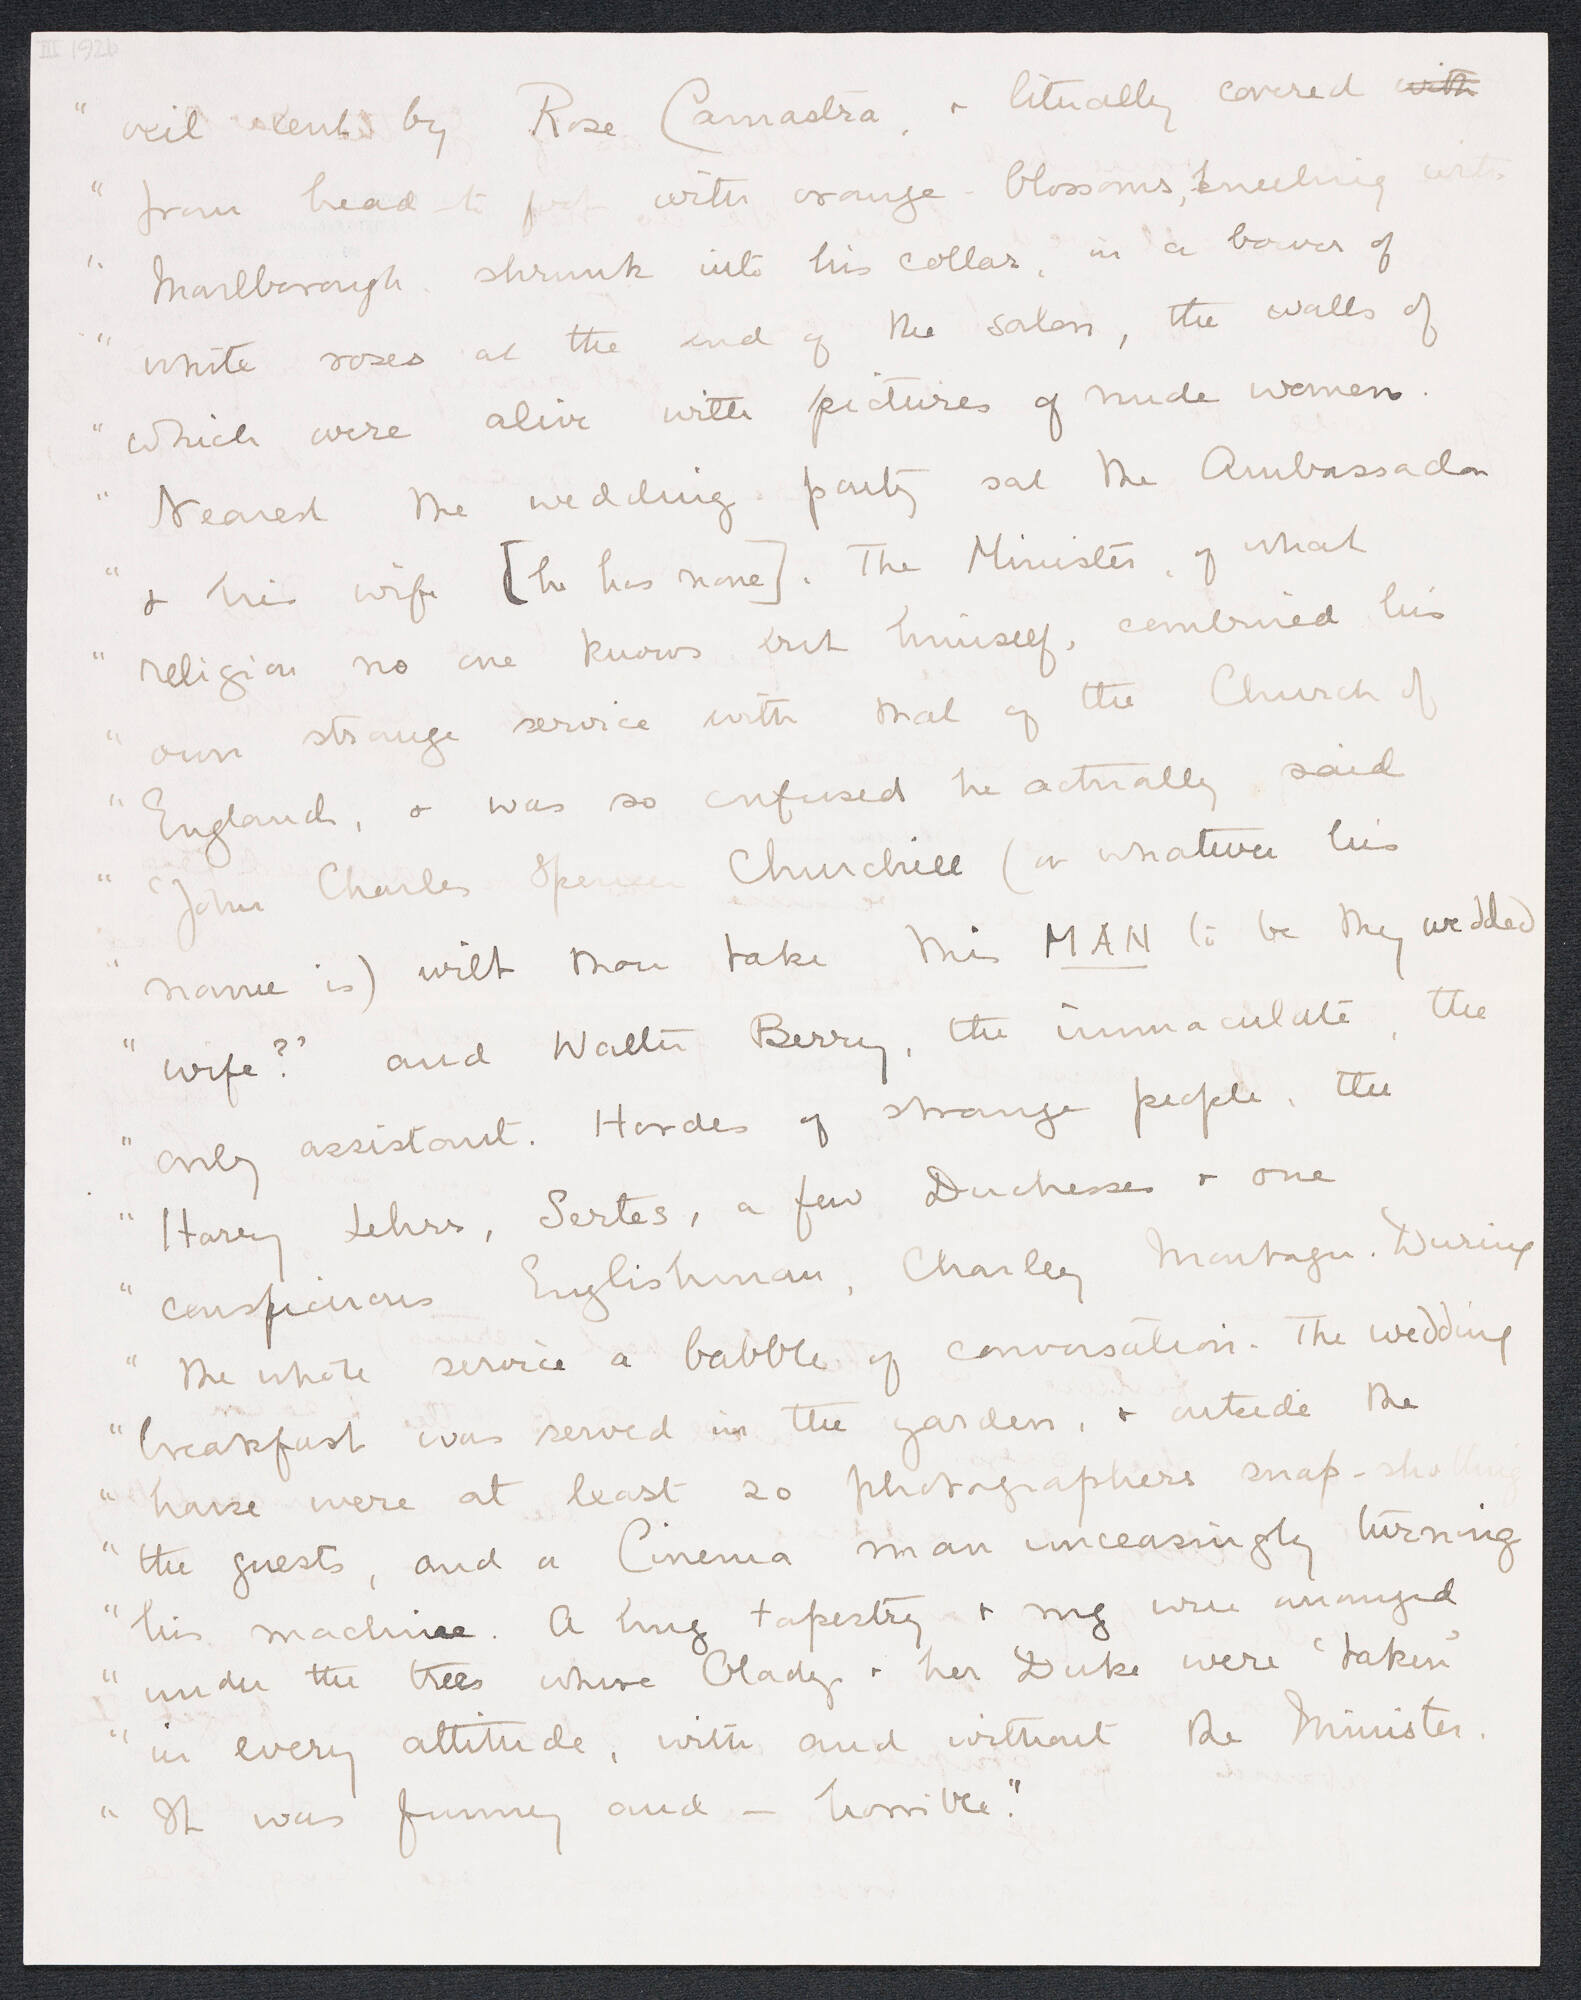 III 1926
" veil lent by Rose Camastra, + litually covered with
" from head to foot with orange-blossoms, kneeling with
" Marlborough shrunk into his collar, in a bower of
" white roses at the end of the salon, the walls of
" which were alive with pictures of nude women.
" Nearest the wedding party sat the Ambassador
" + his wife [he has none]. The Minister, of what
" religion no one knows but himself, combined his
" own strange service with that of the Church of
" England, + was so confused he actually said
" 'John Charles Spencer Churchill (or whatever his
" name is) wilt thou take this MAN to be thy wedded
" wife?' and Walter Berry, the immaculate, the
" only assistant. Hordes of strange people, the
" Harry Lehrs, Sertes, a few Duchesses + one
" conspicuous Englishman, Charley Montagu. During
" the whole service a babble of conversation. The wedding
" breakfast was served in the garden, + outside the
" house were at least 20 photographers snap-shotting
" the guests, and a Cinema man unceasingly turning
" his machine. A hug tapestry + rug were arranged
" under the trees where Gladys + her Duke were 'taken'
" in every attitude, with and without the Minister.
" It was funny and — horrible."